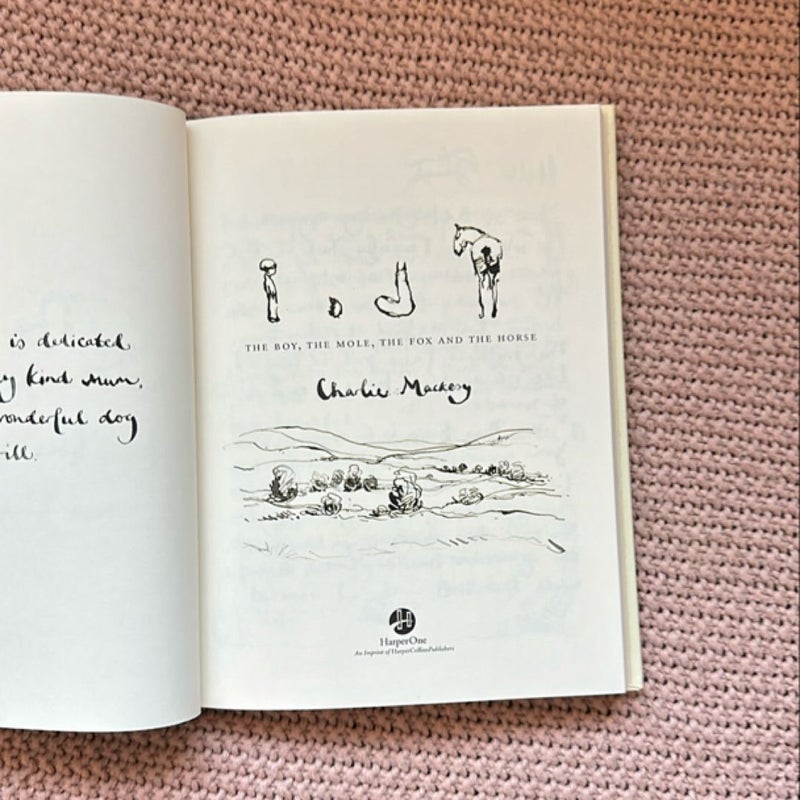 is dedicated
kind mum,
wonderful dog
THE BOY, THE MOLE, THE FOX AND THE HORSE
Charlie Mackesy
HarperOne
An Imprint of HarperCollinsPublishers